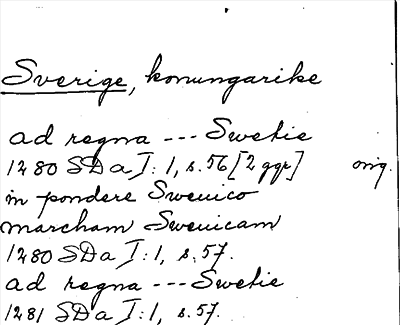 Sverige, konungarike
ad regna --- Swetie
1280 SD a I: 1, s. 56 [2 ggr] orig.
in pondere Swenico
marcham Swenicam
1280 SD a I: 1, s. 57.
ad regna --- Swetie
1281 SD a I: 1, s. 57.